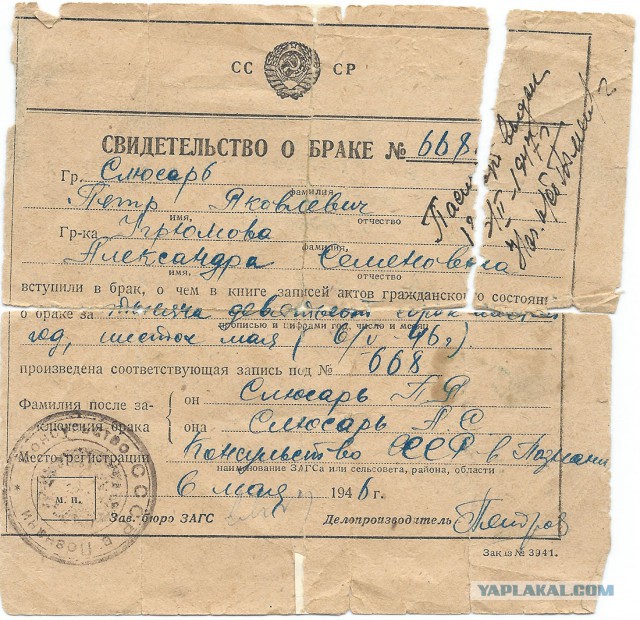 СС СР
СВИДЕТЕЛЬСТВО О БРАКЕ № 668
Гр. Слюсарь
фамилия
Петр Яковлевич
имя, отчество
Гр-ка Угрюмова
фамилия,
Александра Семеновна
имя, отчество
вступили в брак, о чем в книге записей актов гражданского состояни
о браке за тысяча девятьсот сорок шестой
прописью и цифрами год, число и месяц
год, шестого мая (6/V-46г)
произведена соответствующая запись под № 668
Фамилия после за- он Слюсарь П.Я.
ключения брака она Слюсарь А С
Место регистрации Консульство СССР в Познани
наименование ЗАГСа или сельсовета, района, области
6 мая 1946 г.
М. П.
Зав. бюро ЗАГС Делопроизводитель
Заказ № 3941.
СССР
в Познани
Паспорт выдан
YAPLAKAL.COM